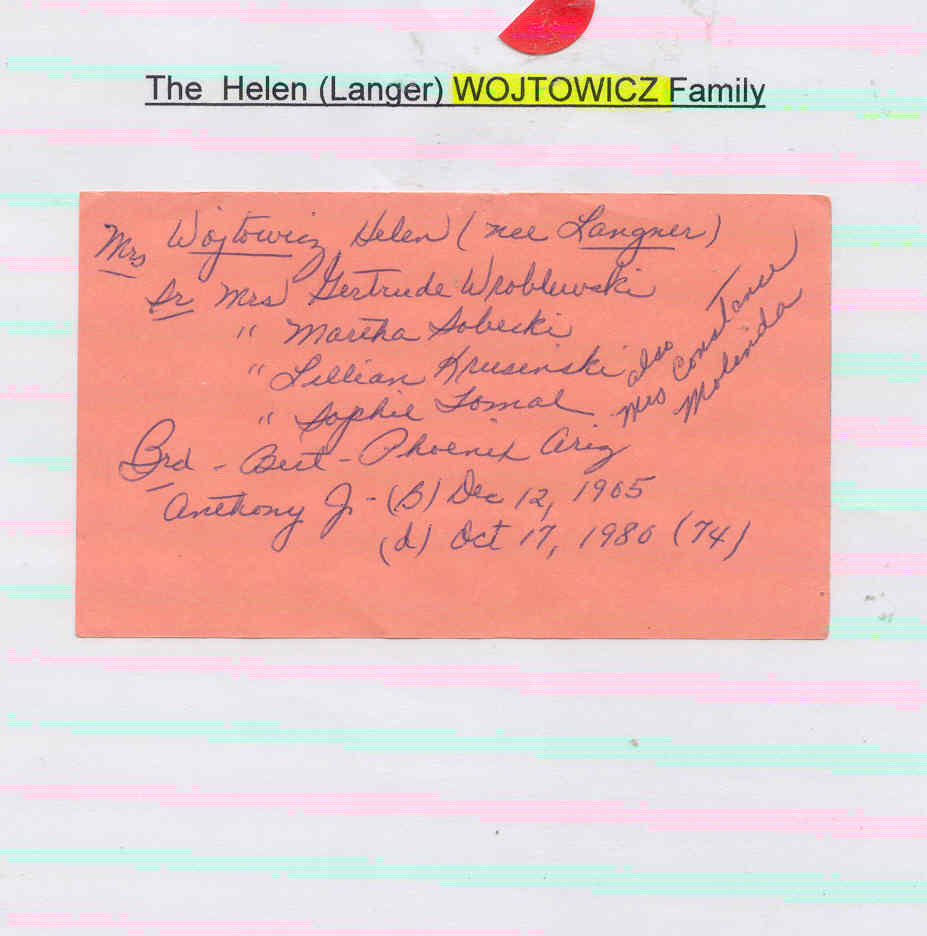 The Helen (Langer) WOJTOWICZ Family
Mrs Wojtowicz Helen (nee Langner)
Sr Mrs Gertrude Wroblewski
" Martha Sobecki
" Lillian Krusinski
" Sophie Tomal
also
Mrs Constance
Molenda
Brd - Bert - Phoenix Ariz
Anthony J. - (B) Dec 12, 1905
(d) Oct 17, 1980 (74)